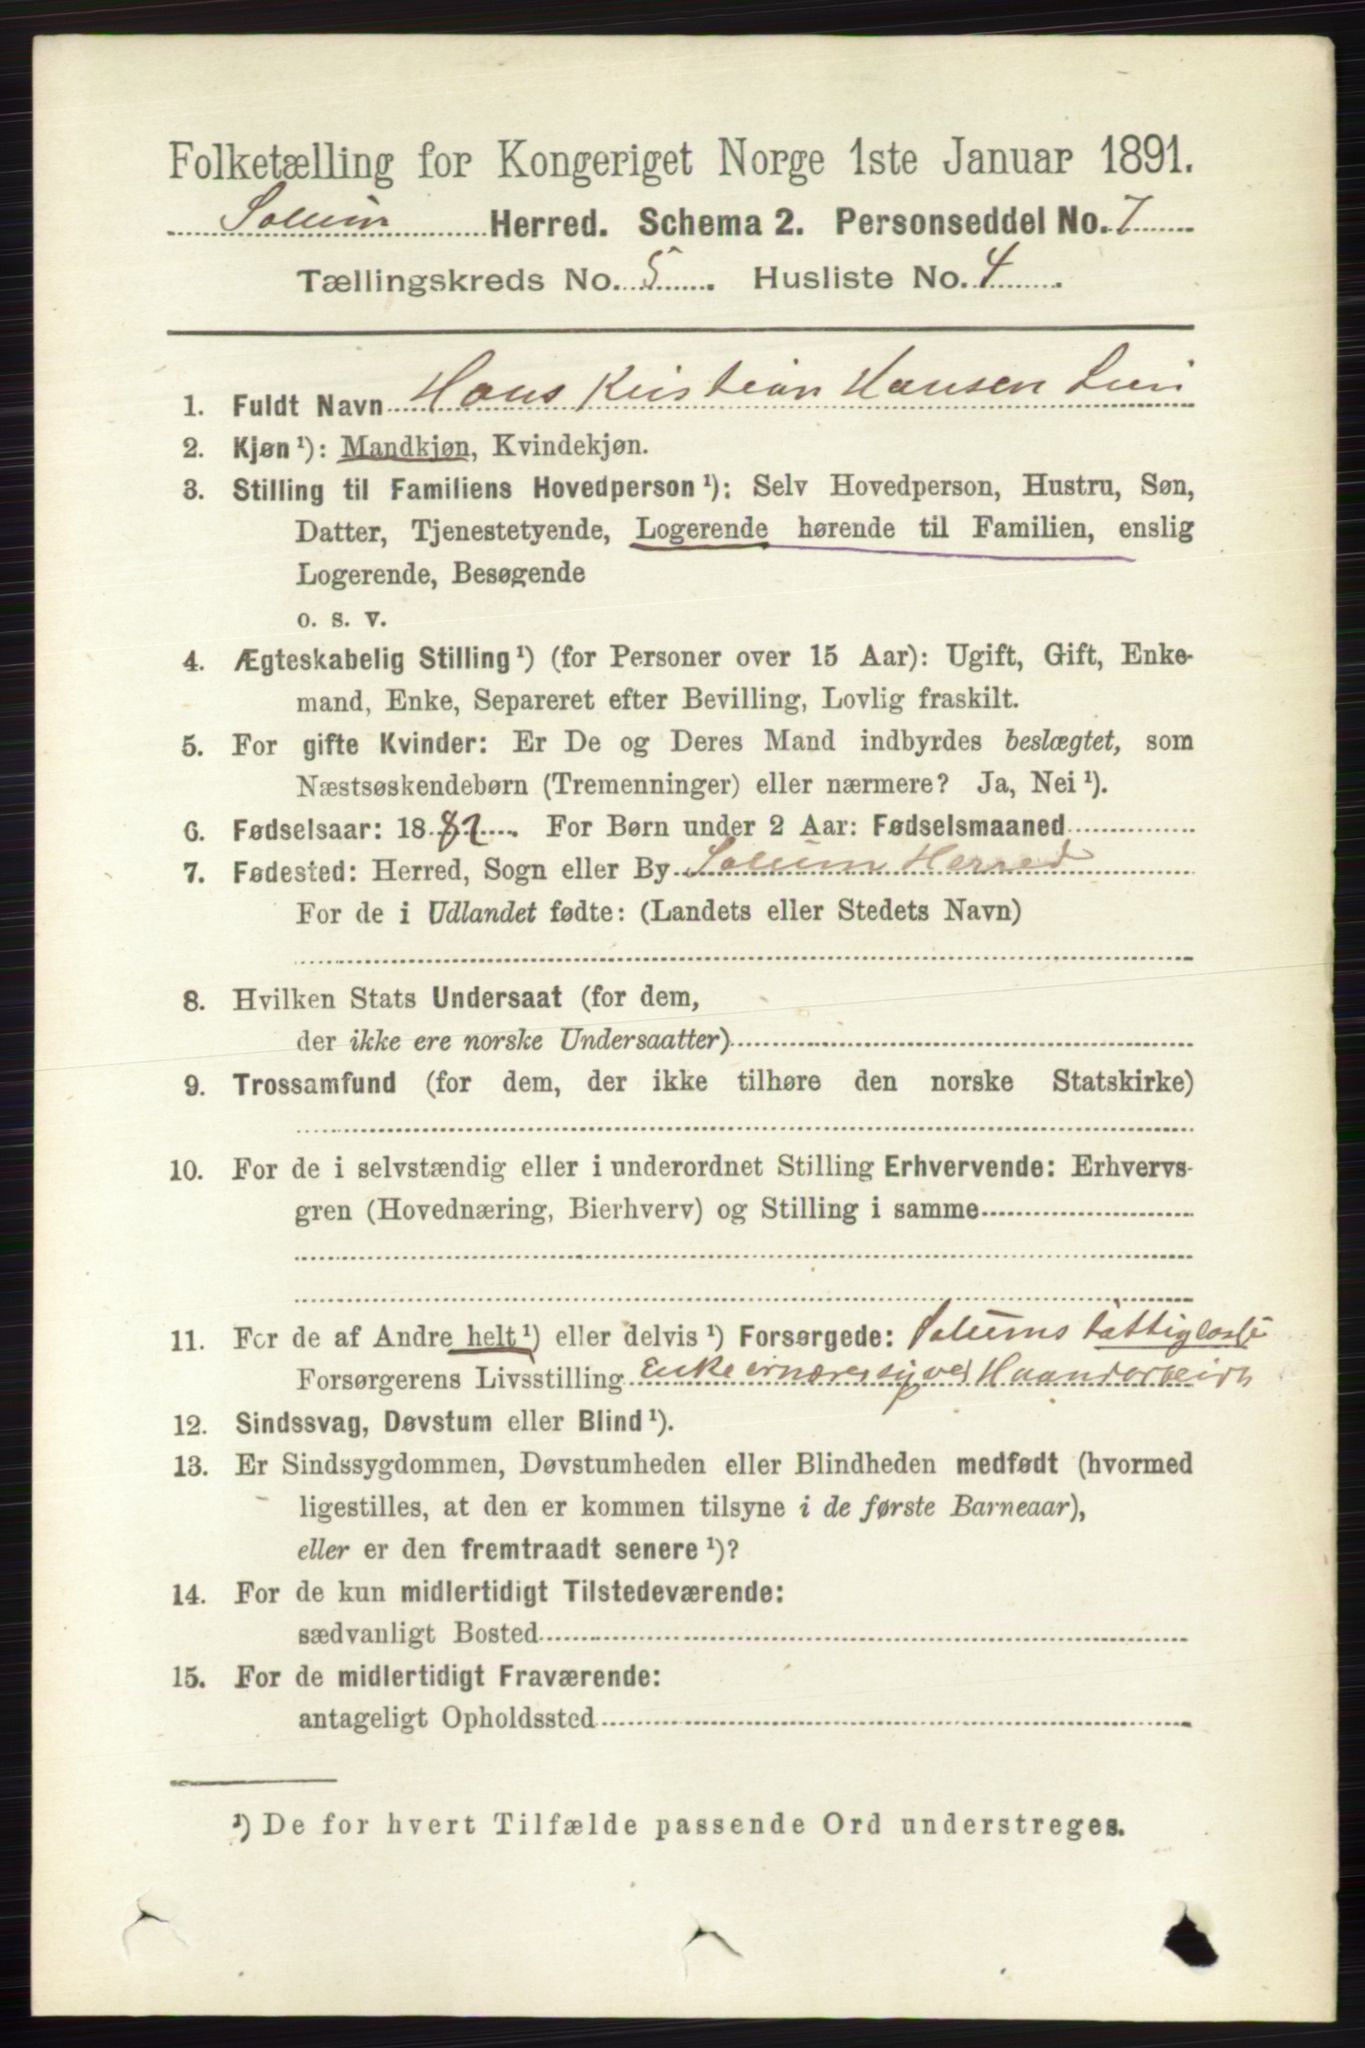 Folketælling for Kongeriget Norge 1ste Januar 1891.
Solum Herred. Schema 2. Personseddel No. 7
Tællingskreds No. 5. Husliste No. 4.
1. Fuldt Navn Hans Kristian Hansen
2. Kjøn ¹): Mandkjøn, Kvindekjøn.
3. Stilling til Familiens Hovedperson ¹): Selv Hovedperson, Hustru, Søn,
Datter, Tjenestetyende, Logerende hørende til Familien, enslig
Logerende, Besøgende
o. s. v.
4. Ægteskabelig Stilling ¹) (for Personer over 15 Aar): Ugift, Gift, Enke-
mand, Enke, Separeret efter Bevilling, Lovlig fraskilt.
5. For gifte Kvinder: Er De og Deres Mand indbyrdes beslægtet, som
Næstsøskendebørn (Tremenninger) eller nærmere? Ja, Nei ¹).
6. Fødselsaar: 1882. For Børn under 2 Aar: Fødselsmaaned
7. Fødested: Herred, Sogn eller By Solum Herred
For de i Udlandet fødte: (Landets eller Stedets Navn)
8. Hvilken Stats Undersaat (for dem,
der ikke ere norske Undersaatter)
9. Trossamfund (for dem, der ikke tilhøre den norske Statskirke)
10. For de i selvstændig eller i underordnet Stilling Erhvervende: Erhvervs-
gren (Hovednæring, Bierhverv) og Stilling i samme
11. For de af Andre helt ¹) eller delvis ¹) Forsørgede: Solums
Forsørgerens Livsstilling Enke ernærer sig ved Haandarbeide
12. Sindssvag, Døvstum eller Blind ¹).
13. Er Sindssygdommen, Døvstumheden eller Blindheden medfødt (hvormed
ligestilles, at den er kommen tilsyne i de første Barneaar),
eller er den fremtraadt senere ¹)?
14. For de kun midlertidigt Tilstedeværende:
sædvanligt Bosted
15. For de midlertidigt Fraværende:
antageligt Opholdssted
¹) De for hvert Tilfælde passende Ord understreges.